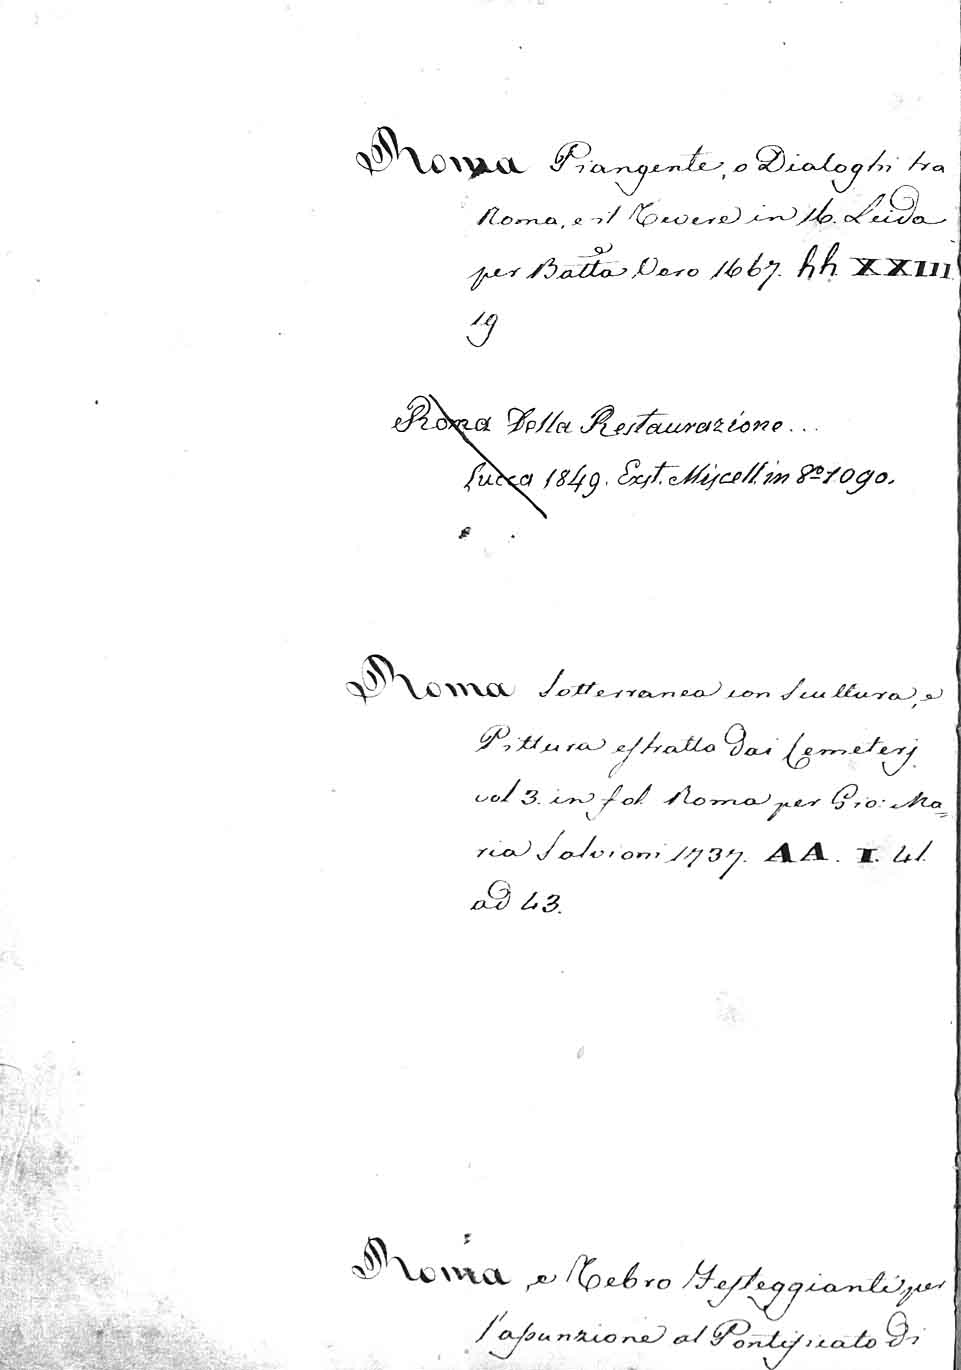 Roma Piangente, o Dialoghi tra
Roma, e il Tevere in 16. Leida
per Batta Vero 1667. hh XXIII.
19
Roma Della Restaurazione...
Lucca 1849. Exst. Miscell. in 8º 1090.
Roma Sotterranea con Scultura, e
Pittura estratto dai Cemeterj
vol 3. in fol. Roma per Gio: Ma=
ria Salvioni 1737. AA. I. 41.
ad 43.
Roma, e Tebro Festeggianti per
l'assunzione al Pontificato di